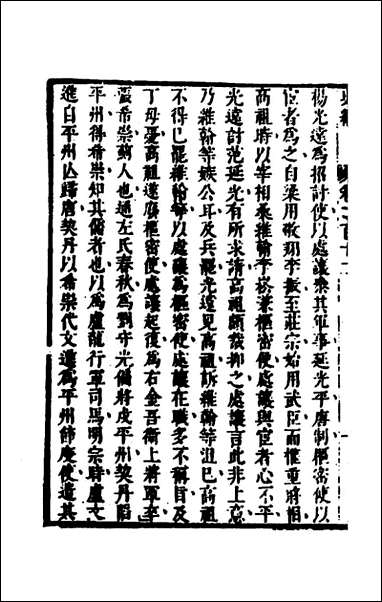 卷之百十二
楊光遠為招討使以處讓參其軍事延光平唐制樞密使以
宦者為之自梁用敬翔李振至莊宗始用武臣而權重將相
高祖時以宰相桑維翰李崧兼樞密使處讓與宦者心不平
光遠討范延光有所求請高祖頗裁抑之處讓言此非上意
乃維翰等嫉公耳及兵罷光遠見高祖訴維翰等沮已高祖
不得已罷維翰等以處讓為樞密使處讓在職多不稱旨及
丁母憂高祖遂廢樞密使處讓起復為右金吾衛上將軍卒
張希崇薊人也通左氏春秋為劉守光偏將戍平州契丹陷
平州得希崇知其儒者也以為盧龍行軍司馬明宗時盧文
進自平州亡歸唐契丹以希崇代文進為平州節度使遣其